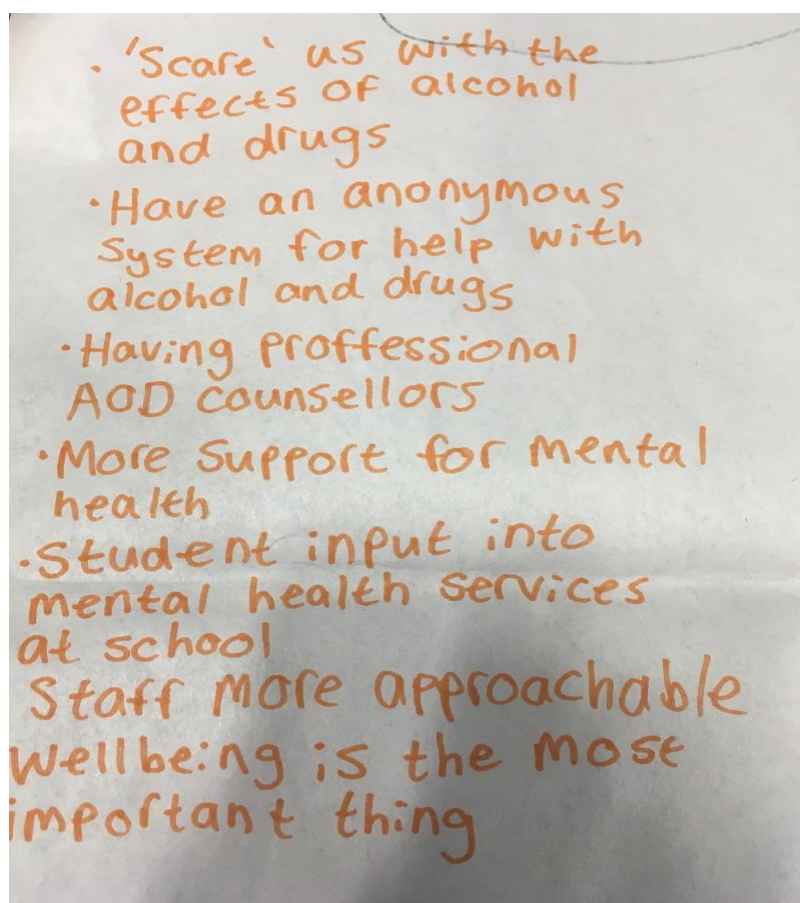 • 'Scare' us with the
effects of alcohol
and drugs
• Have an anonymous
System for help with
alcohol and drugs
• Having proffessional
AOD counsellors
• More Support for mental
health
• Student input into
mental health services
at school
Staff more approachable
Wellbeing is the most
important thing